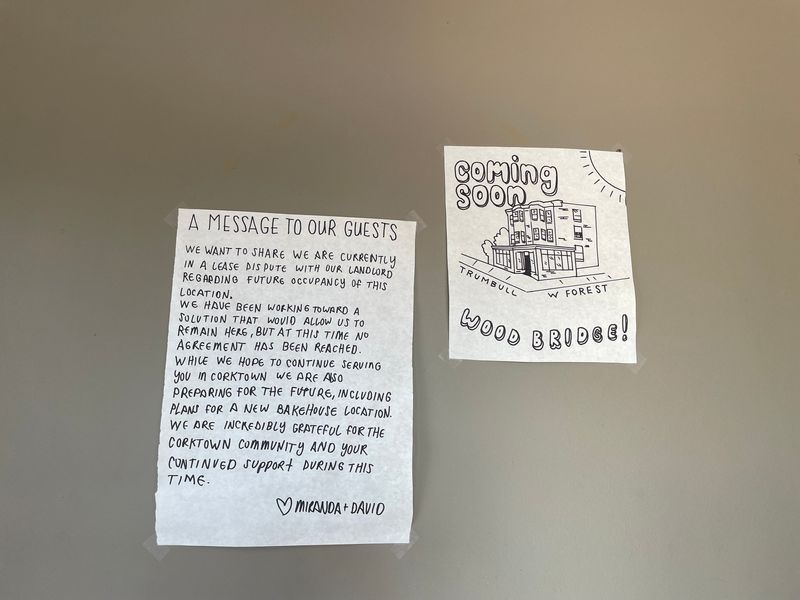 A MESSAGE TO OUR GUESTS
WE WANT TO SHARE WE ARE CURRENTLY
IN A LEASE DISPUTE WITH OUR LANDLORD
REGARDING FUTURE OCCUPANCY OF THIS
LOCATION.
WE HAVE BEEN WORKING TOWARD A
SOLUTION THAT WOULD ALLOW US TO
REMAIN HERE, BUT AT THIS TIME NO
AGREEMENT HAS BEEN REACHED.
WHILE WE HOPE TO CONTINUE SERVING
YOU IN CORKTOWN WE ARE ALSO
PREPARING FOR THE FUTURE, INCLUDING
PLANS FOR A NEW BAKEHOUSE LOCATION.
WE ARE INCREDIBLY GRATEFUL FOR THE
CORKTOWN COMMUNITY AND YOUR
CONTINUED SUPPORT DURING THIS
TIME.
♡ MIRANDA + DAVID
coming
soon
TRUMBULL
W FOREST
WOOD BRIDGE!